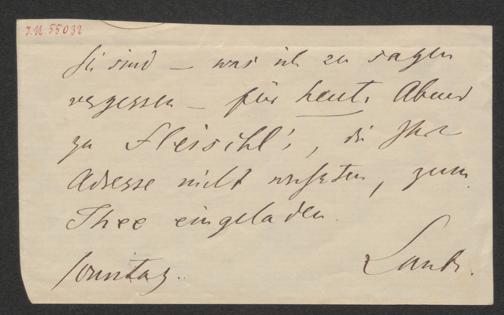 J.N. 55032
Sie sind – was ich zu sagen
vergessen – für heute Abend
zu Fleischl's, die Ihre
Adresse nicht wußten, zum
Thee eingeladen.
Sonntag. Laube.